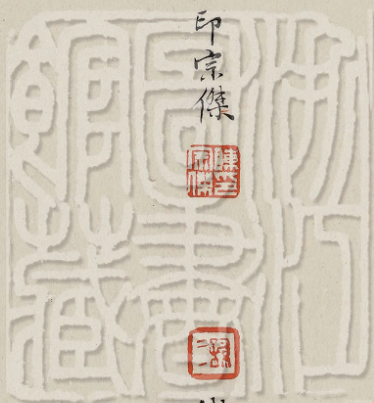 印宗傑
陳印
宗傑
浙江
圖書
館藏